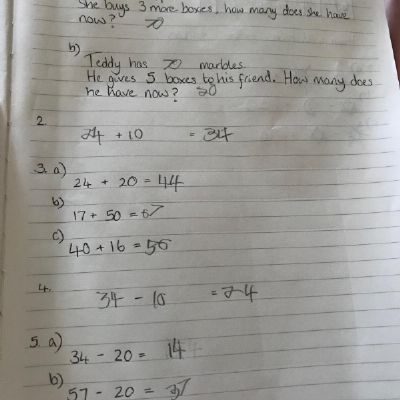 She buys 3 more boxes, how many does she have
now? 70
b)
Teddy has 70 marbles.
He gives 5 boxes to his friend. How many does
he have now? 20
2.
24 + 10 = 34
3. a)
24 + 20 = 44
b)
17 + 50 = 67
c)
40 + 16 = 56
4.
34 - 10 = 24
5. a)
34 - 20 = 14
b)
57 - 20 = 37